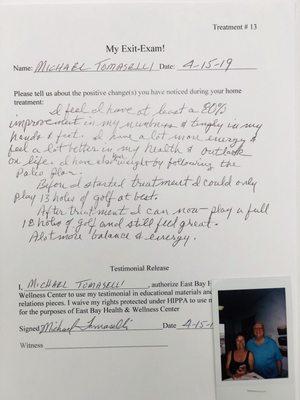 Treatment # 13
My Exit-Exam!
Name: MICHAEL TOMASELLI Date: 4-15-19
Please tell us about the positive change(s) you have noticed during your home
treatment:
I feel I have at least a 80%
improvement in my numbness & tingly in my
hands & feet. I have a lot more energy &
feel a lot better in my health & outlook
on life. I have also lost weight by following the
Paleo plan.
Before I started treatment I could only
play 13 holes of golf at best.
After treatment I can now play a full
18 holes of golf and still feel great.
Alot more balance & energy.
Testimonial Release
I, MICHAEL TOMASELLI, authorize East Bay H
Wellness Center to use my testimonial in educational materials and
relations pieces. I waive my rights protected under HIPPA to use m
for the purposes of East Bay Health & Wellness Center
Signed Michael Tomaselli Date 4-15-1
Witness